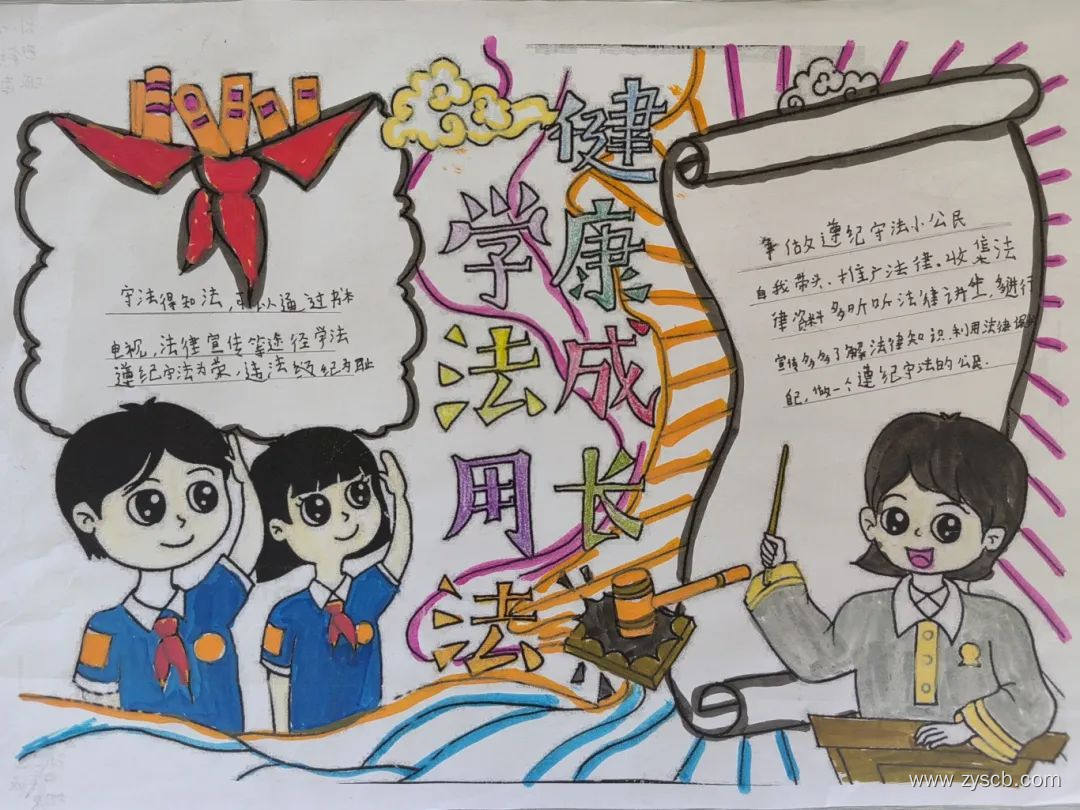 学法用法
健康成长
守法得知法，可以通过书本
电视，法律宣传等途径学法
遵纪守法为荣，违法乱纪为耻
争做遵纪守法小公民
自我带头、推广法律。收集法
律资料多听听法律讲坐，多进行
宣传多多了解法律知识.利用法律保护
自己，做一个遵纪守法的公民.
www.zyscb.com